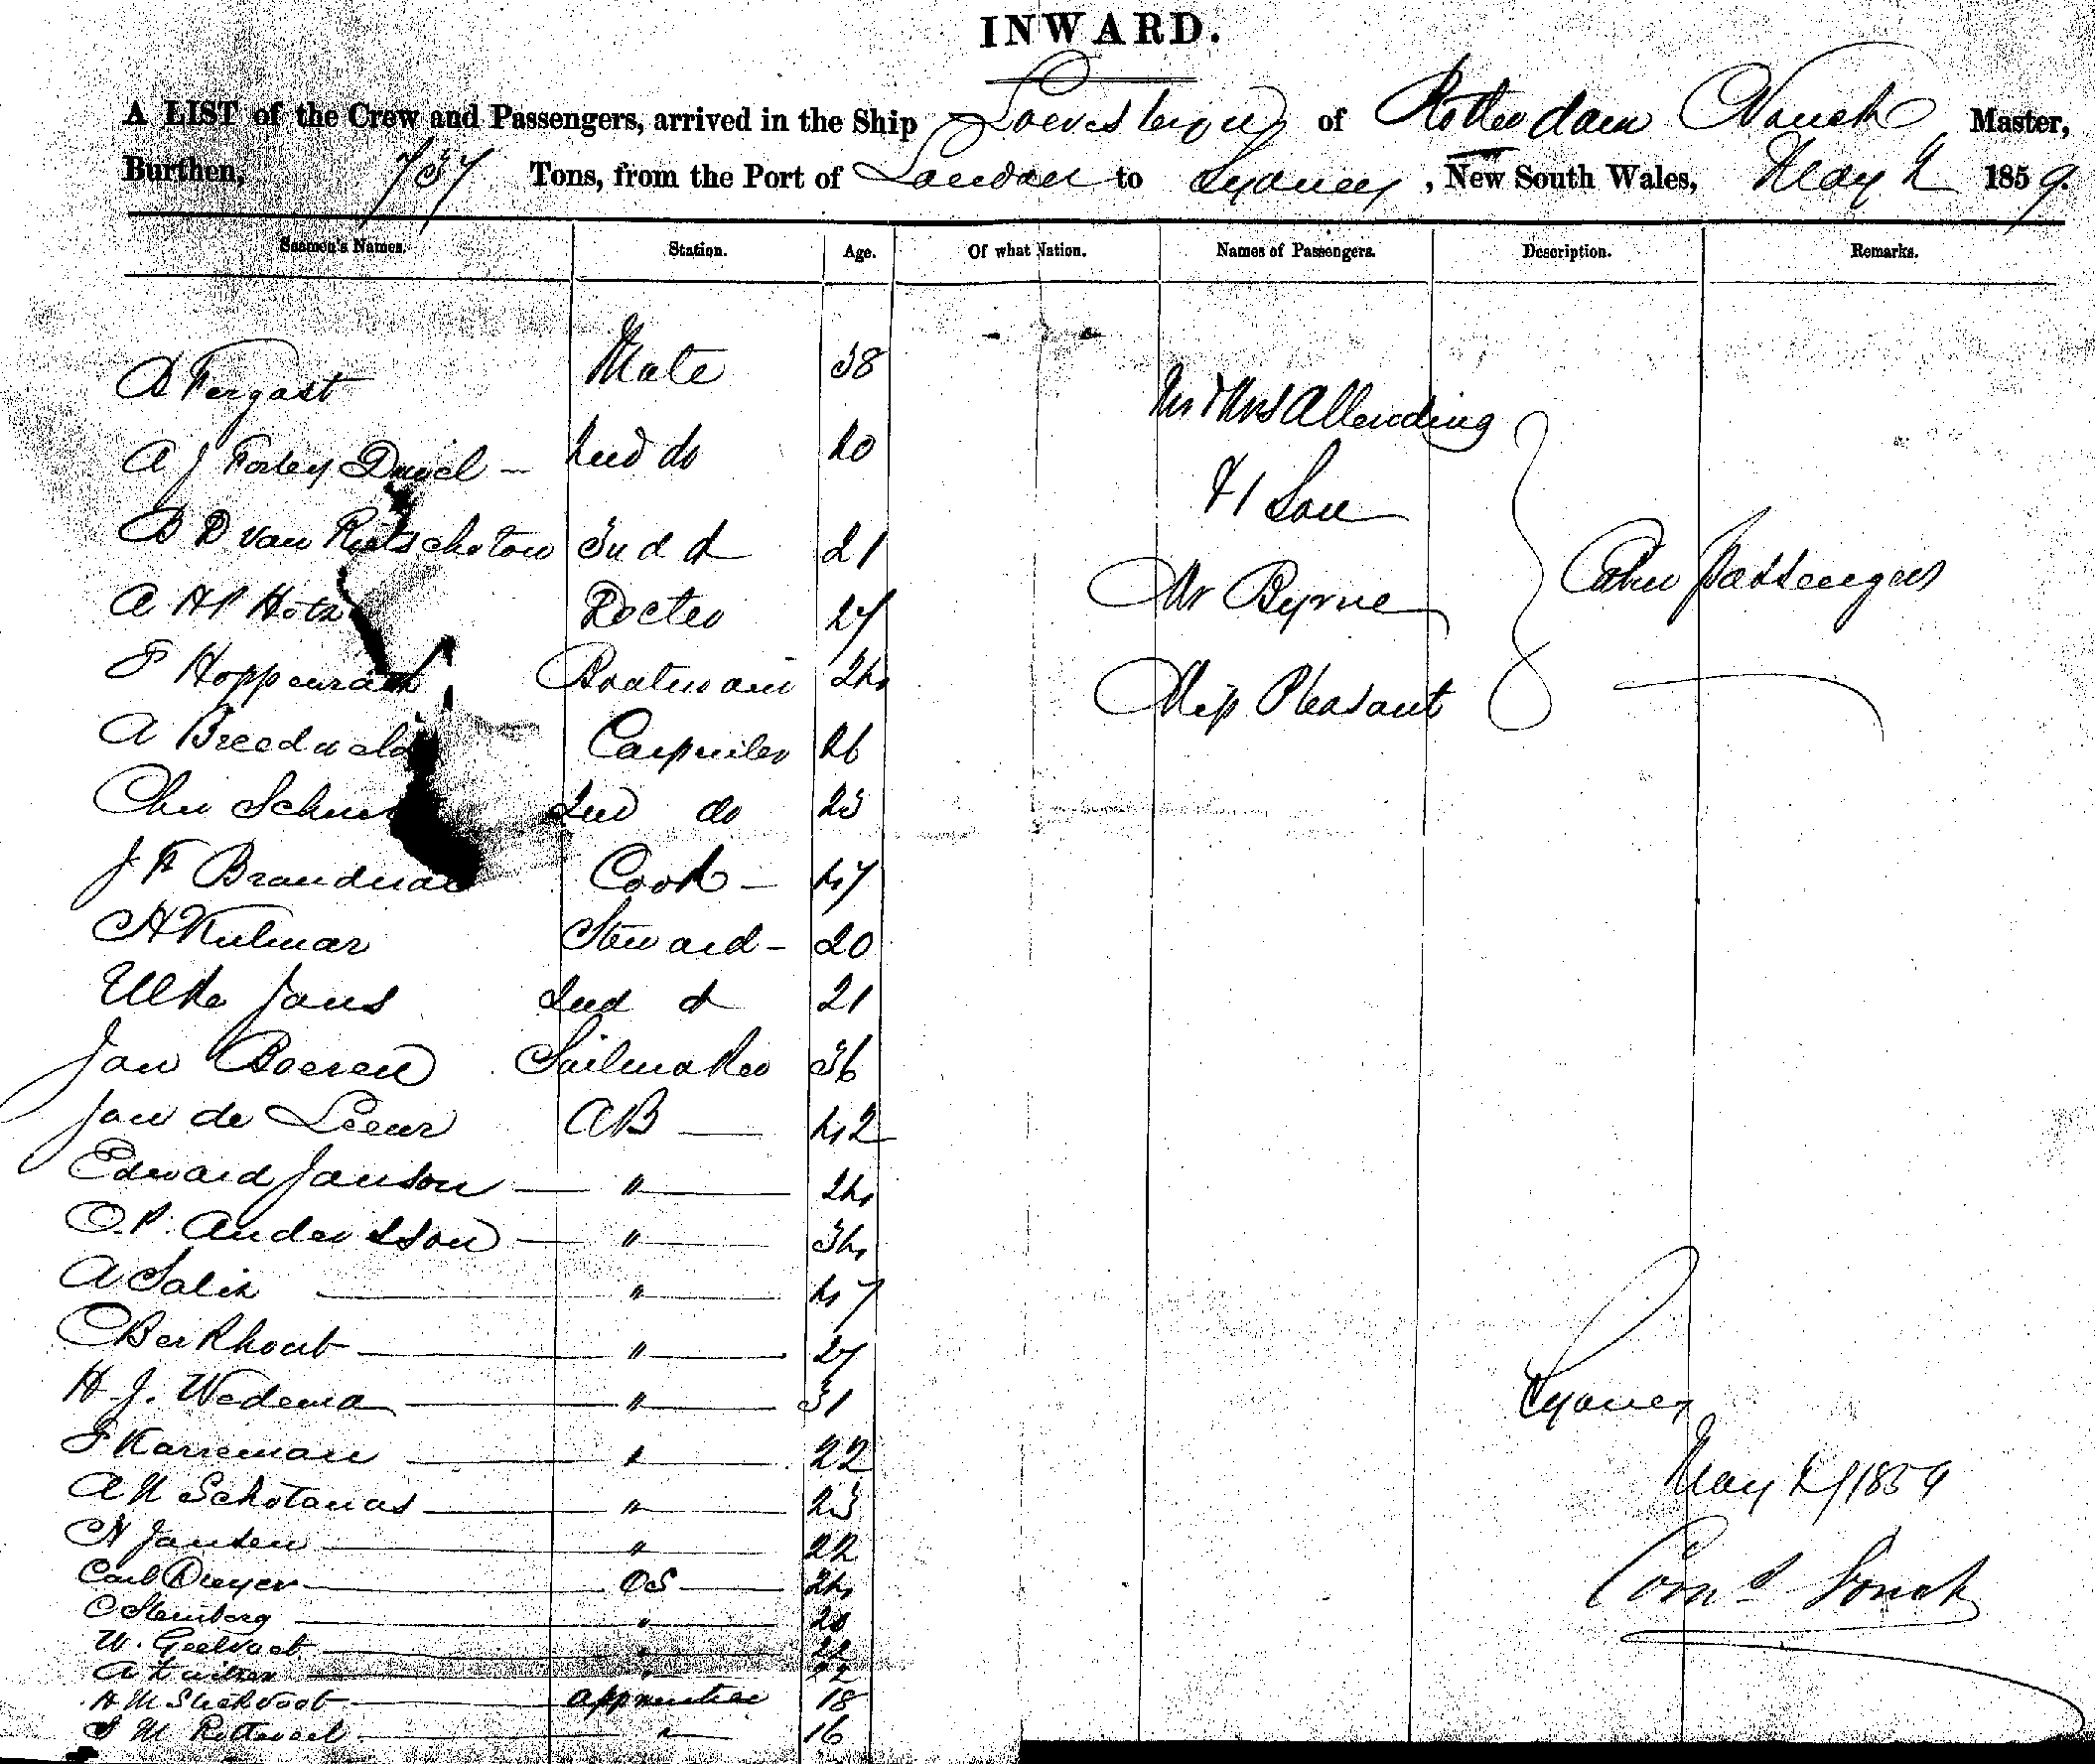 INWARD.
A LIST of the Crew and Passengers, arrived in the Ship Loevesteijn of Rotterdam Master,
Burthen, 737 Tons, from the Port of London to Sydney, New South Wales, May 2 1859.
Seamen's Names. Station. Age. Of what Nation. Names of Passengers. Description. Remarks.
Fergast Mate 38
Mr & Mrs Allending
A J 2nd do 20
& 1 Son
B D van Rietschoten 3rd d 21
Mr Byrne Cabin Passengers
A H P Hotz Docter 27
Hoppenrath Boatswain 24
Miss Pleasant
A Breedveld Carpenter 26
2nd do 23
J F Cook 47
H Kulmar Steward 20
Ulke Jans 2nd d 21
Jan Boeren Sailmaker 36
Jan de Leeur AB 42
Edward Janson " 24
O. P. Andersson " 34
A Salik " 47
C Berkhout " 27
H J. Wedema " 31
Sydney
Karreman " 22
May 2/1859
A N Schotanus " 23
H Jansen " 22
Corns Sonck
Carl Dreyer OS 24
C Steinberg " 20
W. Geelvoet " 22
A " 22
H M Apprentice 18
M Rotteveel " 16